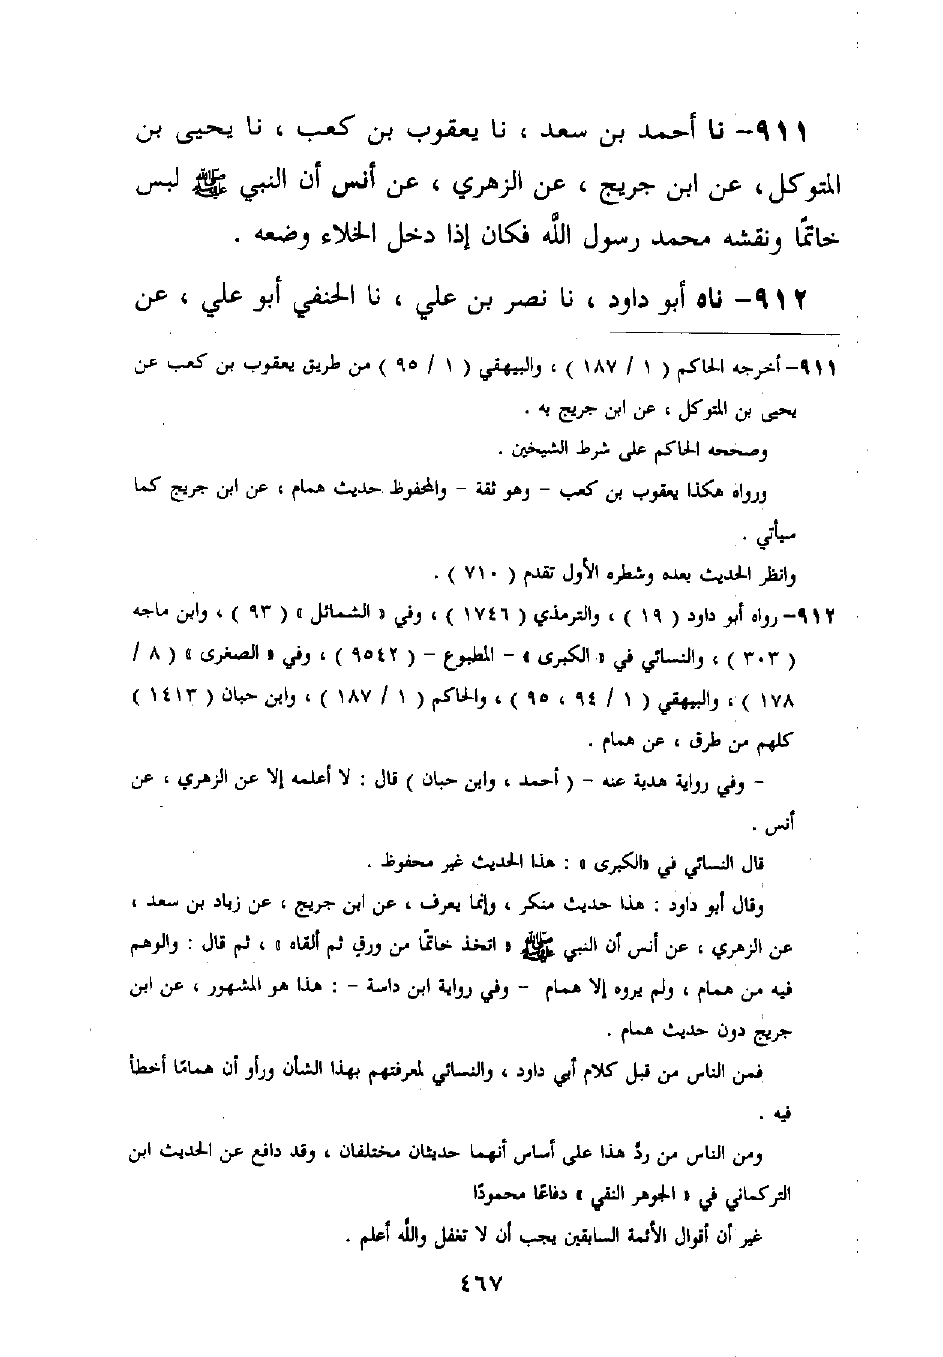 ٩١١– نا أحمد بن سعد ، نا يعقوب بن كعب ، نا يحيى بن
المتوكل، عن ابن جريج ، عن الزهري ، عن أنس أن النبي ﷺ لبس
خاتمًا ونقشه محمد رسول اللَّه فكان إذا دخل الخلاء وضعه .
٩١٢– ناه أبو داود ، نا نصر بن علي ، نا الحنفي أبو علي ، عن
٩١١– أخرجه الحاكم ( ١ / ١٨٧ ) ، والبيهقي ( ١ / ٩٥ ) من طريق يعقوب بن كعب عن
يحيى بن المتوكل ، عن ابن جريج به .
وصححه الحاكم على شرط الشيخين .
ورواه هكذا يعقوب بن كعب – وهو ثقة – والمحفوظ حديث همام ، عن ابن جريج كما
سيأتي .
وانظر الحديث بعده وشطره الأول تقدم ( ٧١٠ ) .
٩١٢– رواه أبو داود ( ١٩ ) ، والترمذي ( ١٧٤٦ ) ، وفي « الشمائل » ( ٩٣ ) ، وابن ماجه
( ٣٠٣ ) ، والنسائي في « الكبرى » – المطبوع – ( ٩٥٤٢ ) ، وفي « الصغرى » ( ٨ /
١٧٨ ) ، والبيهقي ( ١ / ٩٤ ، ٩٥ ) ، والحاكم ( ١ / ١٨٧ ) ، وابن حبان ( ١٤١٣ )
كلهم من طرق ، عن همام .
– وفي رواية هدبة عنه – ( أحمد ، وابن حبان ) قال : لا أعلمه إلا عن الزهري ، عن
أنس .
قال النسائي في «الكبرى » : هذا الحديث غير محفوظ .
وقال أبو داود : هذا حديث منكر ، وإنما يعرف ، عن ابن جريج ، عن زياد بن سعد ،
عن الزهري ، عن أنس أن النبي ﷺ « اتخذ خاتمًا من ورقٍ ثم ألقاه » ، ثم قال : والوهم
فيه من همام ، ولم يروه إلا همام – وفي رواية ابن داسة – : هذا هو المشهور ، عن ابن
جريج دون حديث همام .
فمن الناس من قبل كلام أبي داود ، والنسائي لمعرفتهم بهذا الشأن ورأو أن همامًا أخطأ
فيه .
ومن الناس من ردَّ هذا على أساس أنهما حديثان مختلفان ، وقد دافع عن الحديث ابن
التركماني في « الجوهر النقي » دفاعًا محمودًا
غير أن أقوال الأئمة السابقين يجب أن لا تغفل واللَّه أعلم .
٤٦٧